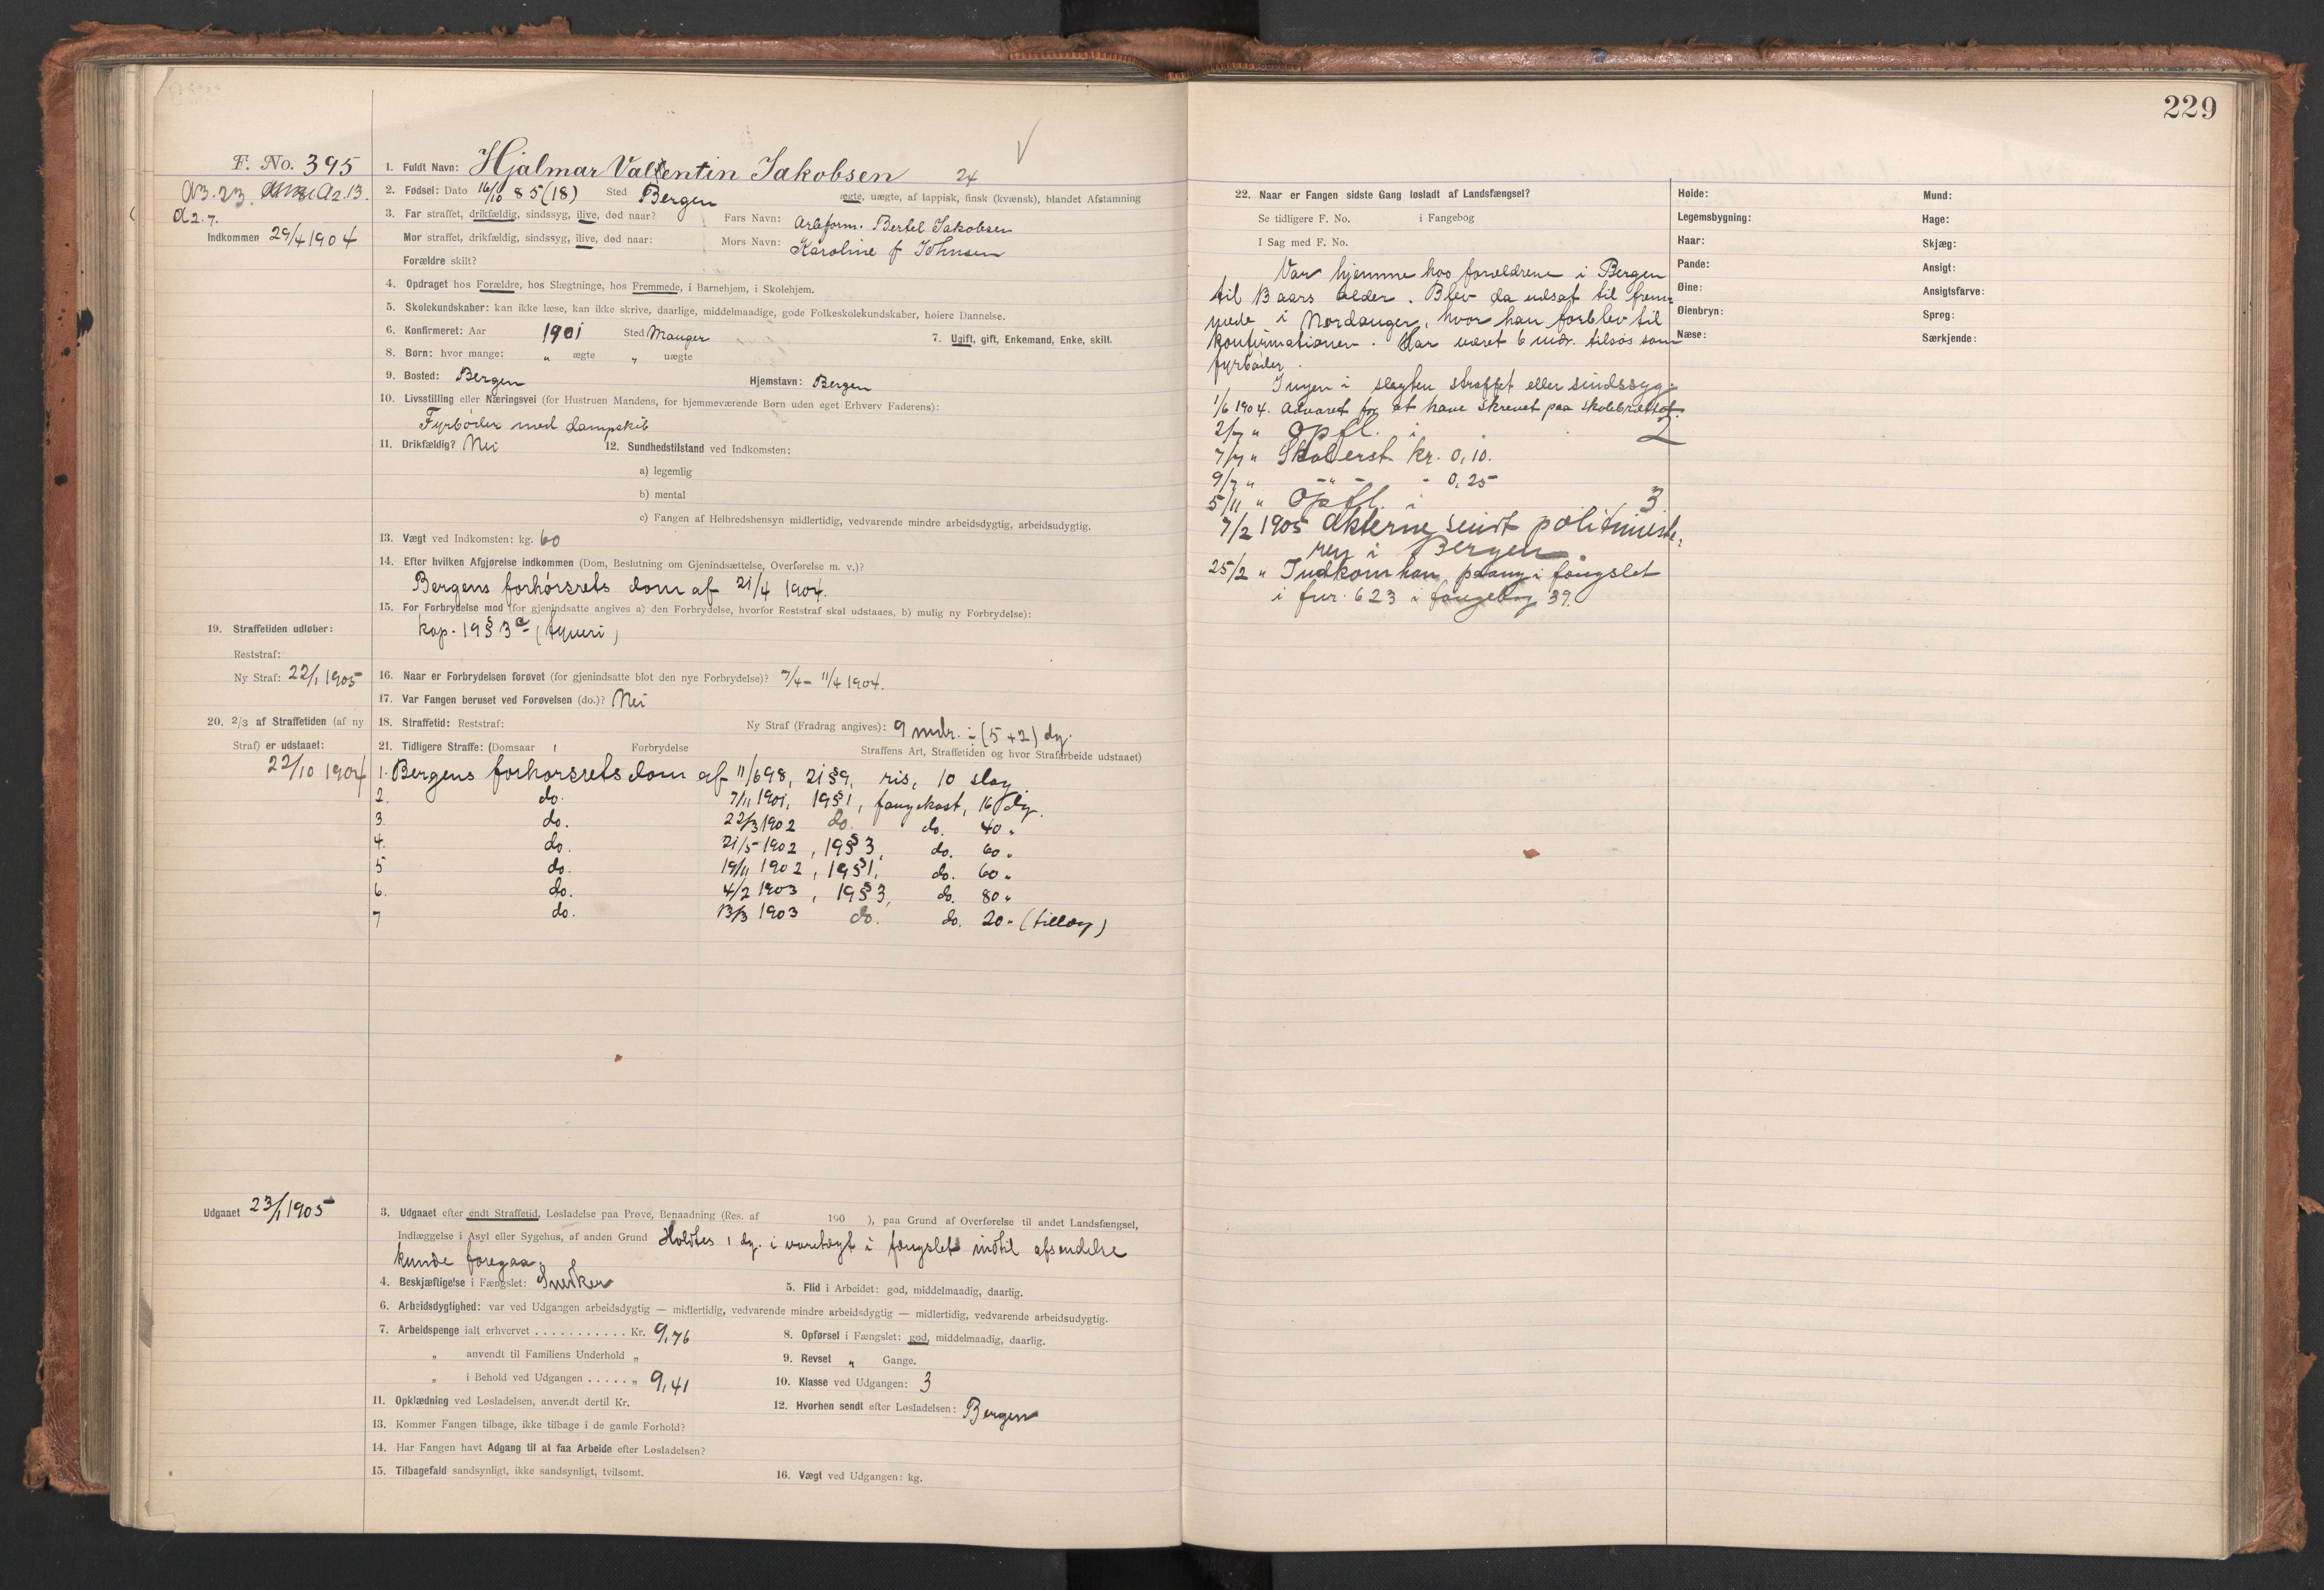 229
F. No. 395
a3.23. a2.13.
a2.7.
Indkommen 29/4 1904
1. Fuldt Navn: Hjalmar Valentin Jakobsen 24
2. Fødsel: Dato 16/10 85 (18) Sted Bergen ægte, uægte, af lappisk, finsk (kvænsk), blandet Afstamning
3. Far straffet, drikfældig, sindssyg, ilive, død naar? Fars Navn: Arbform. Bertel Jakobsen
Mor straffet, drikfældig, sindssyg, ilive, død naar: Mors Navn: Karoline f Johnsen
Forældre skilt?
4. Opdraget hos Forældre, hos Slægtninge, hos Fremmede, i Barnehjem, i Skolehjem.
5. Skolekundskaber: kan ikke læse, kan ikke skrive, daarlige, middelmaadige, gode Folkeskolekundskaber, høiere Dannelse.
6. Konfirmeret: Aar 1901 Sted Manger 7. Ugift, gift, Enkemand, Enke, skilt.
8. Børn: hvor mange: " ægte " uægte
9. Bosted: Bergen Hjemstavn: Bergen
10. Livsstilling eller Næringsvei (for Hustruen Mandens, for hjemmeværende Børn uden eget Erhverv Faderens):
Fyrbøder med dampskib
11. Drikfældig? Nei 12. Sundhedstilstand ved Indkomsten:
a) legemlig
b) mental
c) Fangen af Helbredshensyn midlertidig, vedvarende mindre arbeidsdygtig, arbeidsudygtig.
13. Vægt ved Indkomsten: kg. 60
14. Efter hvilken Afgjørelse indkommen (Dom, Beslutning om Gjenindsættelse, Overførelse m. v.)?
Bergens forhørsrets dom af 21/4 1904.
15. For Forbrydelse mod (for gjenindsatte angives a) den Forbrydelse, hvorfor Reststraf skal udstaaes, b) mulig ny Forbrydelse):
kap. 19 § 3 (tyveri)
19. Straffetiden udløber:
Reststraf:
Ny Straf: 22/1 1905
16. Naar er Forbrydelsen forøvet (for gjenindsatte blot den nye Forbrydelse)? 7/4 - 11/4 1904.
17. Var Fangen beruset ved Forøvelsen (do.)? Nei
20. 2/3 af Straffetiden (af ny
Straf) er udstaaet:
22/10 1904
18. Straffetid: Reststraf: Ny Straf (Fradrag angives): 9 mdr. ÷ (5 + 2) dg.
21. Tidligere Straffe: (Domsaar Forbrydelse Straffens Art, Straffetiden og hvor Strafarbeide udstaaet)
1. Bergens forhørsrets dom af 11/6 98, 21 § 9, ris, 10 slag.
2. do. 7/11 1901, 19 § 1, fangekost, 16 dg.
3. do. 22/3 1902 do. do. 40 "
4. do. 21/5 1902, 19 § 3, do. 60 "
5 do. 19/11 1902, 19 § 1, do. 60 "
6. do. 4/2 1903, 19 § 3, do. 80 "
7 do. 13/3 1903 do. do. 20 " (tillæg)
Udgaaet 23/1 1905
3. Udgaaet efter endt Straffetid, Løsladelse paa Prøve, Benaadning (Res. af 190 ), paa Grund af Overførelse til andet Landsfængsel,
Indlæggelse i Asyl eller Sygehus, af anden Grund Holdtes 1 dg. i varetægt i fængslet indtil afsendelse
kunde foregaa.
4. Beskjæftigelse i Fængslet: Snedker 5. Flid i Arbeidet: god, middelmaadig, daarlig.
6. Arbeidsdygtighed: var ved Udgangen arbeidsdygtig — midlertidig, vedvarende mindre arbeidsdygtig — midlertidig, vedvarende arbeidsudygtig.
7. Arbeidspenge ialt erhvervet . . . . . . . . . . . Kr. 9,76 8. Opførsel i Fængslet: god, middelmaadig, daarlig.
" anvendt til Familiens Underhold " 9. Revset " Gange.
" i Behold ved Udgangen . . . . . " 9,41 10. Klasse ved Udgangen: 3
11. Opklædning ved Løsladelsen, anvendt dertil Kr. 12. Hvorhen sendt efter Løsladelsen: Bergen
13. Kommer Fangen tilbage, ikke tilbage i de gamle Forhold?
14. Har Fangen havt Adgang til at faa Arbeide efter Løsladelsen?
15. Tilbagefald sandsynligt, ikke sandsynligt, tvilsomt. 16. Vægt ved Udgangen: kg.
22. Naar er Fangen sidste Gang løsladt af Landsfængsel?
Se tidligere F. No. i Fangebog
I Sag med F. No.
Var hjemme hos forældrene i Bergen
til 13 aars alder. Blev da udsat til frem-
mede i Nordanger, hvor han forblev til
konfirmationen. Har været 6 mdr. tilsøs som
fyrbøder.
Ingen i slegten straffet eller sindssyg.
1/6 1904. Advaret for at have skrevet paa skolebrættet.
2/7 " Opfl. i 2
7/7 " Skoleerst. kr. 0,10.
9/7 " - " - - 0,25
5/11 " Opfl. i 3
7/2 1905 Akterne sendt politimeste-
ren i Bergen.
25/2 " Indkom han paany i fængslet
i fnr. 623 i fangebog 39.
Høide:
Legemsbygning:
Haar:
Pande:
Øine:
Øienbryn:
Næse:
Mund:
Hage:
Skjæg:
Ansigt:
Ansigtsfarve:
Sprog:
Særkjende: